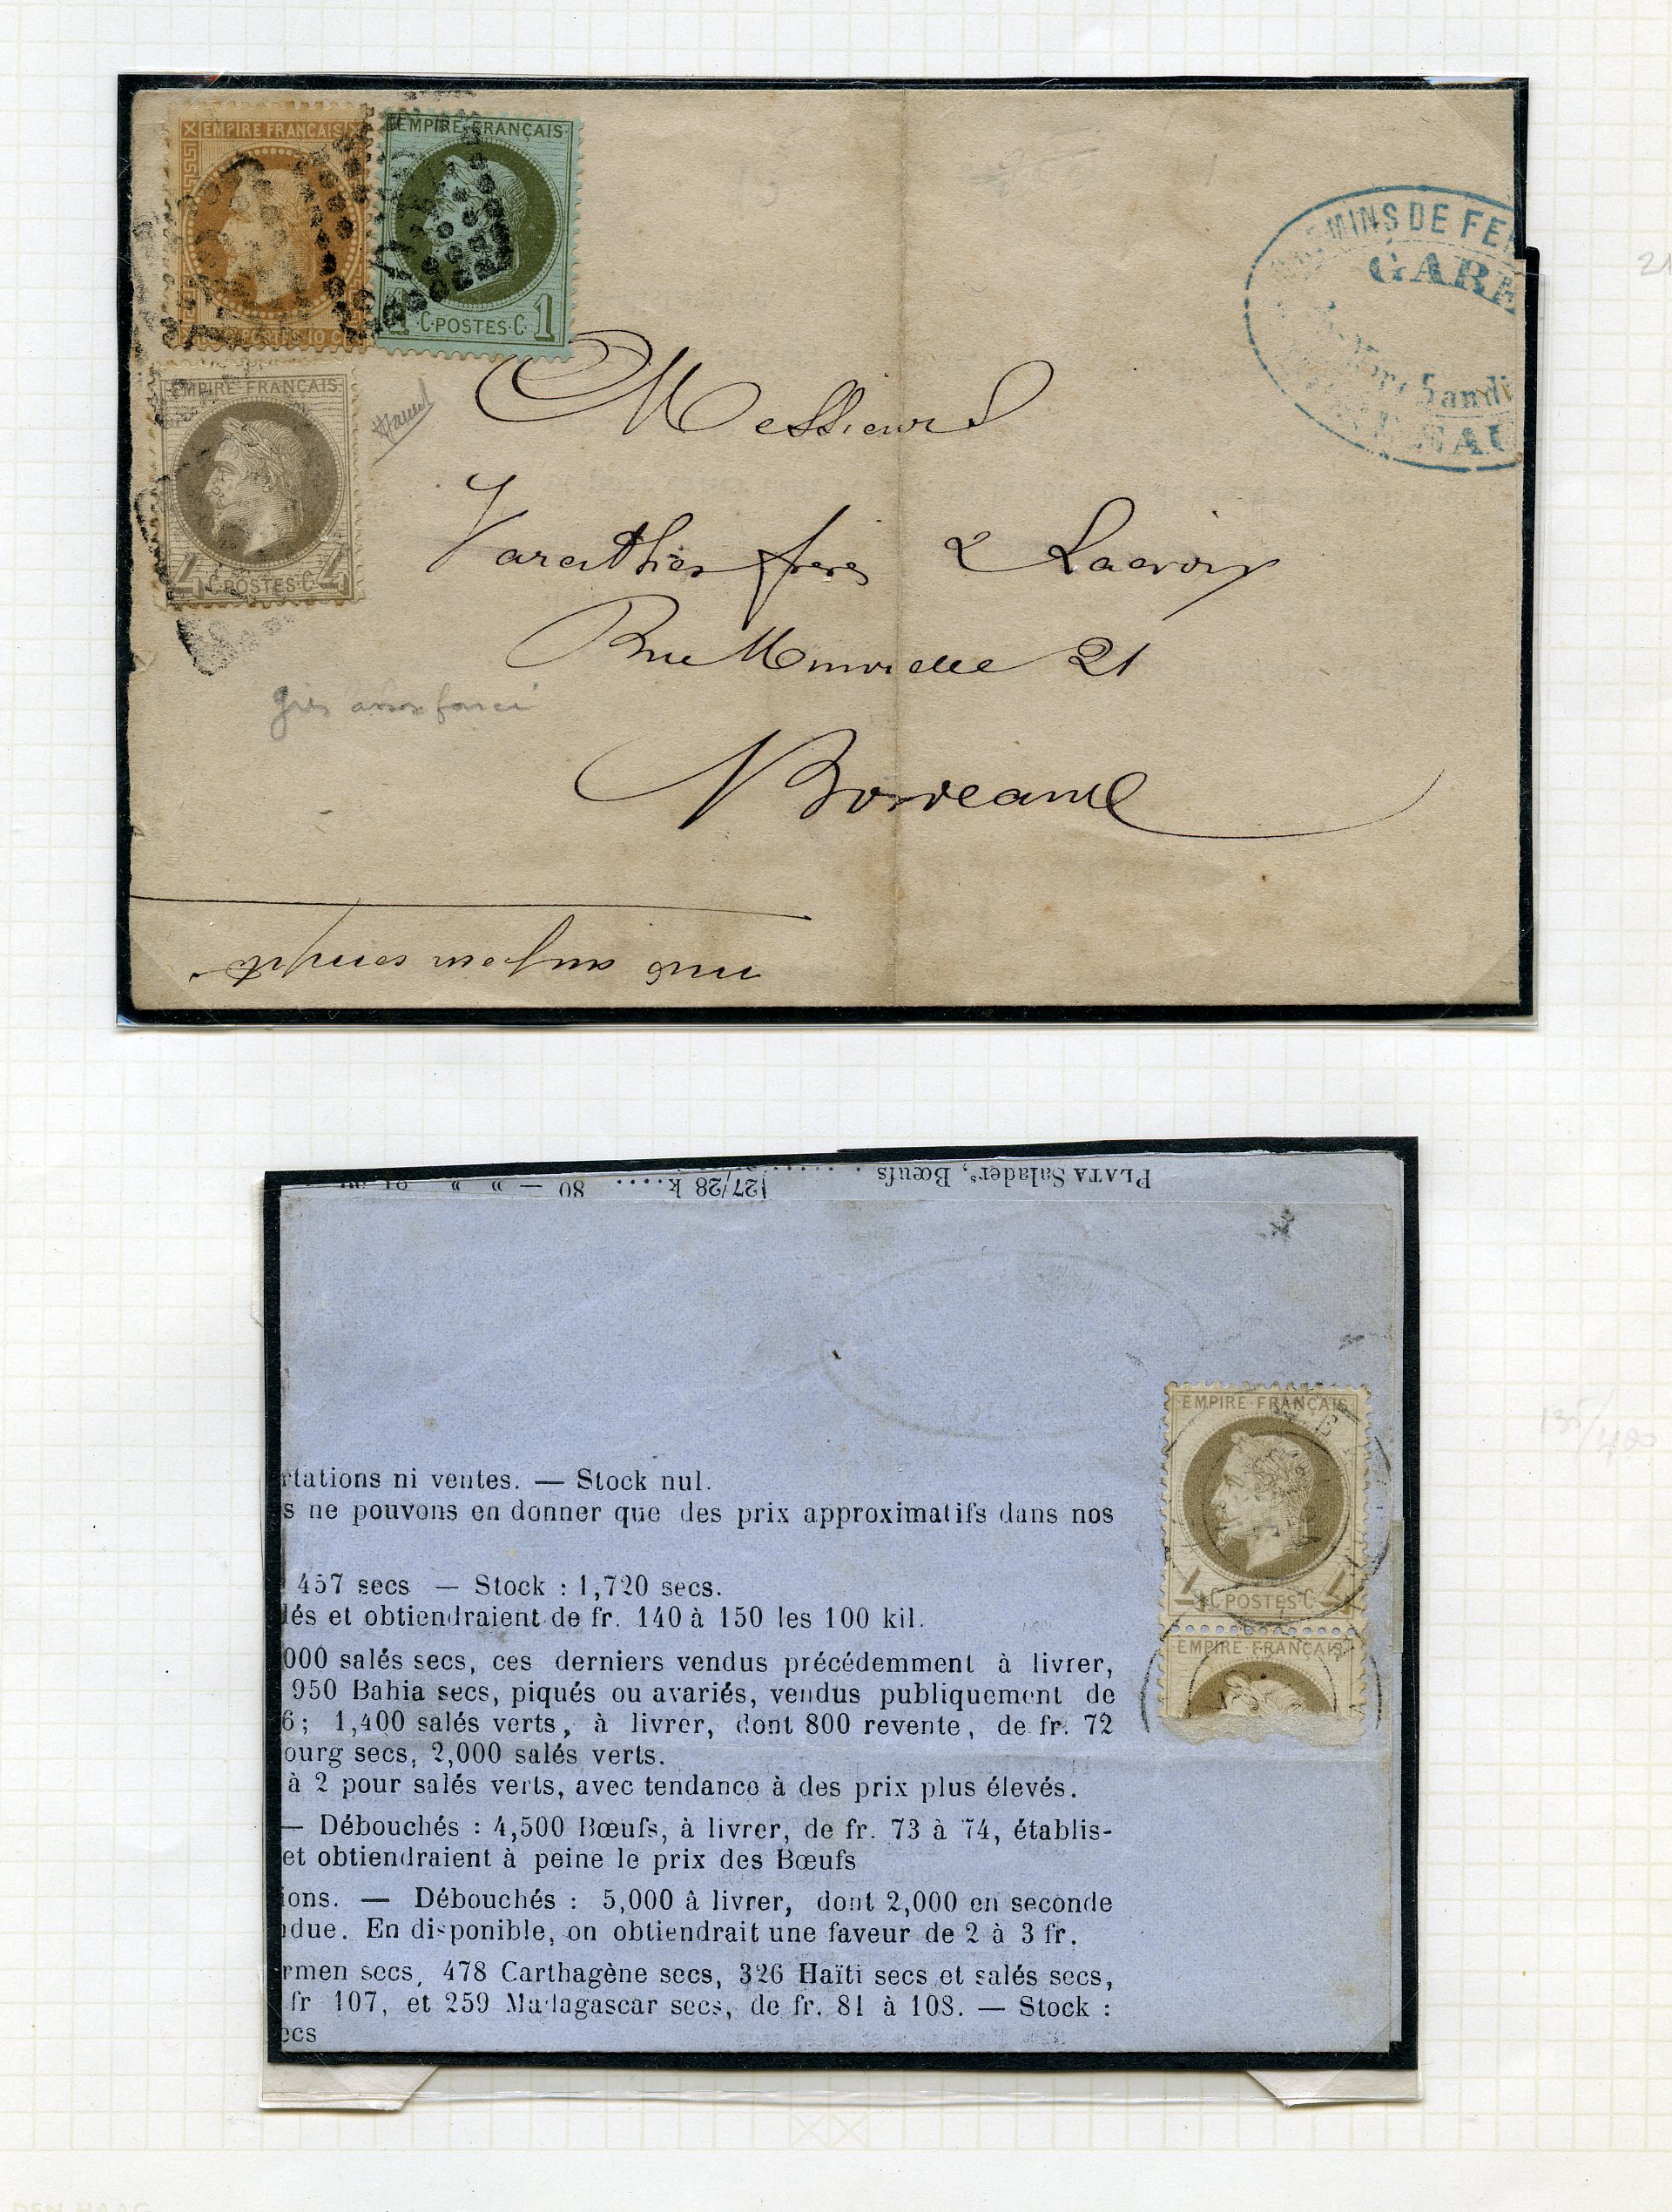 EMPIRE FRANÇAIS
POSTES 10 C
EMPIRE FRANÇAIS
1 C·POSTES·C 1
EMPIRE FRANÇAIS
4 C·POSTES·C 4
MINS DE FE
GARE
Messieurs
frères & Lacroix
Rue 21
Bordeaux
gris assez foncé
PLATA Salader^s, Bœufs
27/28 k.... 80 — » »
EMPIRE FRANÇAIS
4 C·POSTES·C 4
EMPIRE FRANÇAIS
rtations ni ventes. — Stock nul.
s ne pouvons en donner que des prix approximatifs dans nos
457 secs — Stock : 1,720 secs.
lés et obtiendraient de fr. 140 à 150 les 100 kil.
000 salés secs, ces derniers vendus précédemment à livrer,
950 Bahia secs, piqués ou avariés, vendus publiquement de
6; 1,400 salés verts, à livrer, dont 800 revente, de fr. 72
ourg secs, 2,000 salés verts.
à 2 pour salés verts, avec tendance à des prix plus élevés.
— Débouchés : 4,500 Bœufs, à livrer, de fr. 73 à 74, établis-
et obtiendraient à peine le prix des Bœufs
ions. — Débouchés : 5,000 à livrer, dont 2,000 en seconde
ndue. En disponible, on obtiendrait une faveur de 2 à 3 fr.
rmen secs, 478 Carthagène secs, 326 Haïti secs et salés secs,
fr 107, et 259 Madagascar secs, de fr. 81 à 108. — Stock :
ecs
135/400
DEN HAAG